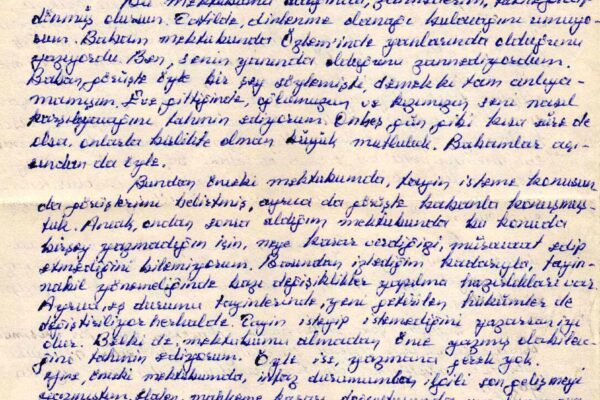 Bu mektubumu aldığında,
dönmüş olursun. Tatilde, dinlenme olanağı bulduğunu umuyo-
rum. Babam mektubunda Özlem'inde yanlarında olduğunu
yazıyordu. Ben, senin yanında olduğunu zannediyordum.
Babam, görüşte öyle bir şey söylemişti, demekki tam anlıya-
mamışım. Eve gittiğinde, oğlumuzun ve kızımızın seni nasıl
karşılayacağını tahmin ediyorum. Onbeş gün gibi kısa süre de
olsa, onlarla birlikte olman büyük mutluluk. Babamlar açı-
sından da öyle.
Bundan önceki mektubumda, tayin isteme konusun
da görüşlerimi belirtmiş, ayrıca da görüşte babamla konuşmuş-
tuk. Ancak, ondan sonra aldığım mektubunda bu konuda
birşey yazmadığın için, neye karar verdiğini, müracaat edip
etmediğini bilemiyorum. Basından izlediğim kadarıyla, tayin-
nakil yönetmeliğinde bazı değişiklikler yapılma hazırlıkları var.
Ayrıca, eş durumu tayinlerinde, yeni getirilen hükümler de
değiştiriliyor herhalde. Tayin isteyip istemediğini yazarsan iyi
olur. Belki de, mektubumu almadan önce yazmış olabilece-
ğini tahmin ediyorum. Öyle ise, yazmana gerek yok.
Yine, önceki mektubumda, infaz durumumla ilgili son gelişmeyi
yazmıştım. mahkeme kararı